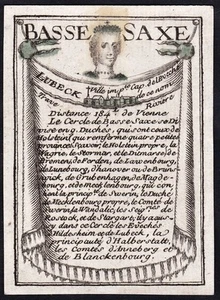 BASSE SAXE
LUBECK Ville imp.le Cap. de la Basse
de ce nom.
Trave Riviere
Distance 184 de Vienne
Le Cercle de Basse Saxe se Di-
vise en 9. Duchés, qui sont ceux de
Holstein lui renferme quatre petites
provinces Savoir; le Holstein propre, la
Wagrie, le Stormar, et le Dismarche de
Bremen; de Ferden, de Lawembourg,
de Lunebourg, d'hanover ou de Bruns-
wick, de Grubenhagen, de Magde-
bourg, et de Mecklembourg, qui con-
tient la princip.té de Swerin, le Duché
de Mecklembourg propre, le Comté de
Swerin, le Wandalie, les Seig.ries de
Rostock, et de Stargart; il y a aus-
sy dans ce Cercle les Evechés
d'Hildesheim, et de Lubeck, la
principauté d'Halberstatt,
les Comtés d'
et de
Blanckenbourg.